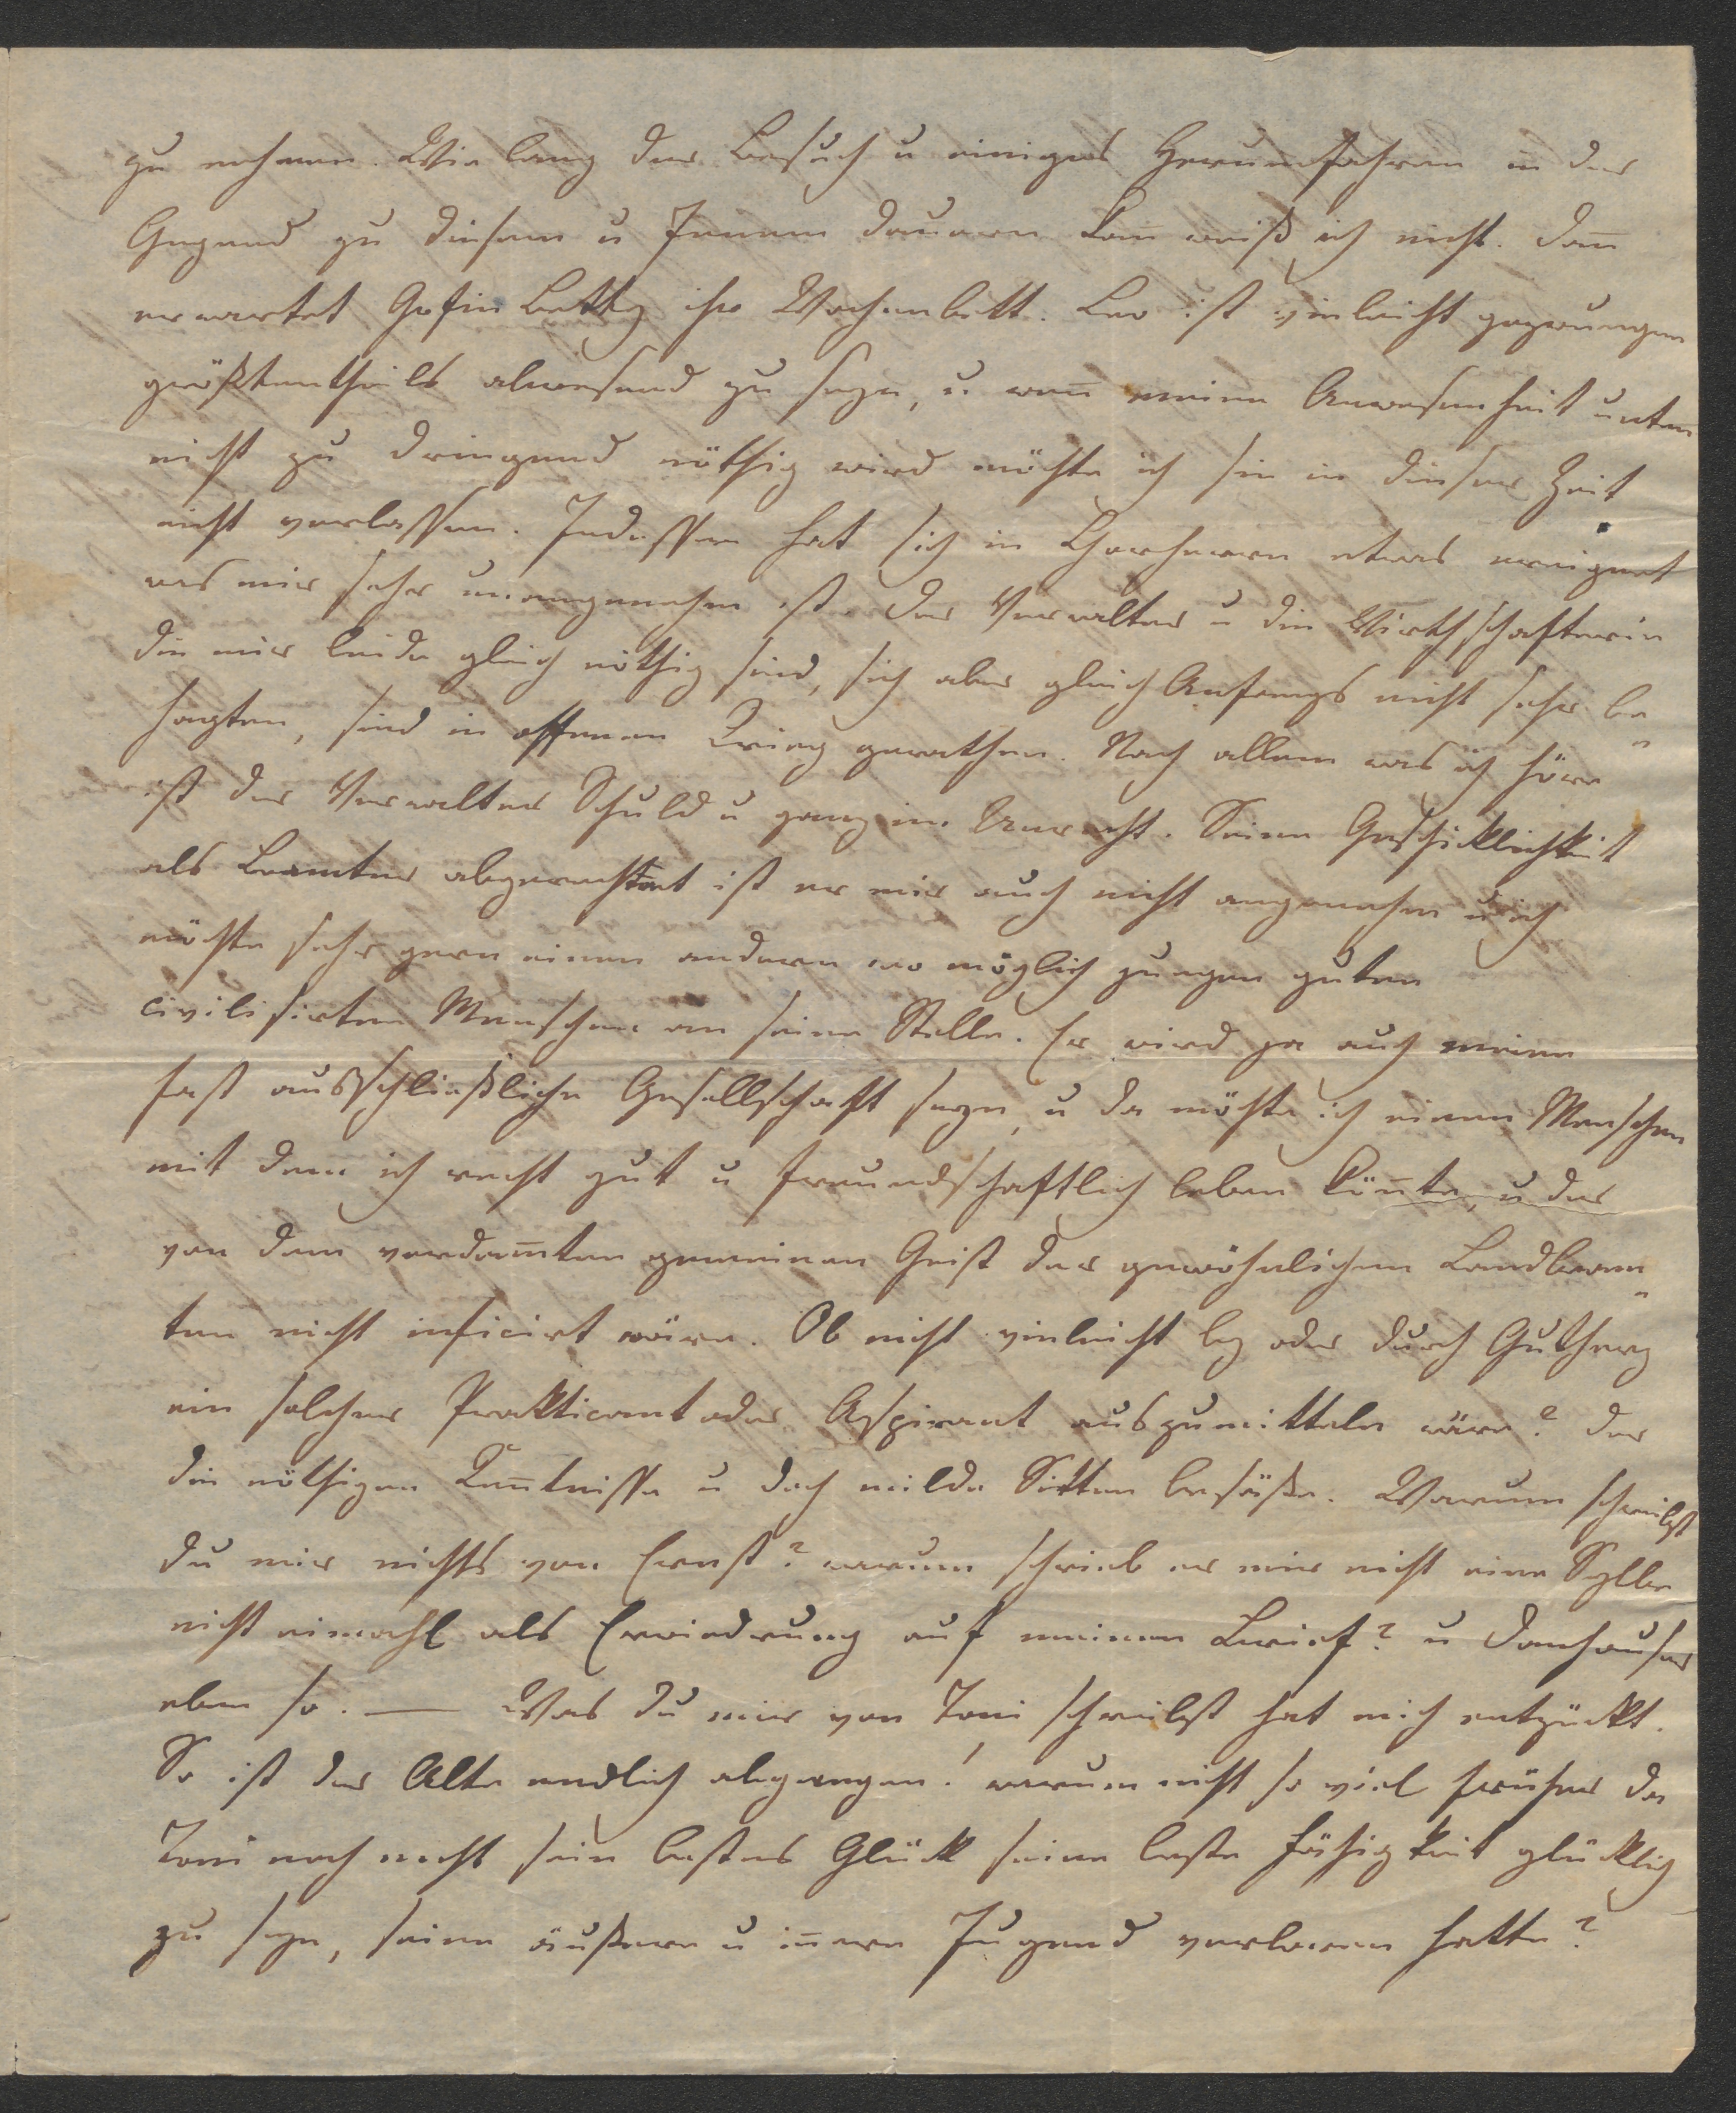 zu nehmen. Wie lang der Besuch u einiges Herumfahren in der
Gegend zu diesem u Jenem dauern kan̅ weiß ich nicht. Dan̅
erwartet Gfin Betty ihr Wochenbett. Leo ist vieleicht gezwungen
größtentheils abwesend zu seyn, u wen̅ meine Anwesenheit unten
nicht zu dringend nöthig wird möchte ich sie in dieser Zeit
nicht verlassen. Indessen hat sich in etwas ereignet
was mir sehr unangenehm ist. Der Verwalter u die Wirthschafterin
die mir beide gleich nöthig sind, sich aber gleich Anfangs nicht sehr be„
hagten, sind in offenen Krieg gerathen. Nach allem was ich höre
ist der Verwalter Schuld u ganz im Unrecht. Seine Geschicklichkeit
als Beamter abgerechnet ist er mir auch nicht angenehm u ich
möchte sehr gern einen andern wo möglich jungen guten
civilisirten Menschen an seine Stelle. Er wird ja auch meine
fast ausschließliche Gesellschaft seyn, u da möchte ich einen Menschen
mit dem ich recht gut u freundschaftlich leben kön̅te, u der
von dem verdam̅ten gemeinen Geist der gewöhnlichen Landbeam„
ten nicht inficirt wäre. Ob nicht vieleicht by oder durch Gutherz
ein solcher Prakticant oder Aspirant auszumitteln wäre? der
die nöthigen Ken̅tnisse u doch milde Sitten besäße. Warum schreibst
du mir nichts von Ernst? warum schrieb er mir nicht eine Sylbe
nicht eimahl als Erwiedrung auf meinen Brief? u Danhauser
eben so. — Was du mir von Toni schreibst hat mich entzückt.
So ist der Alte endlich abgegangen! warum nicht so viel früher da
Toni noch nicht sein bestes Glück seine beste Fähigkeit glücklich
zu seyn, seine äußere u in̅ere Jugend verloren hatte?